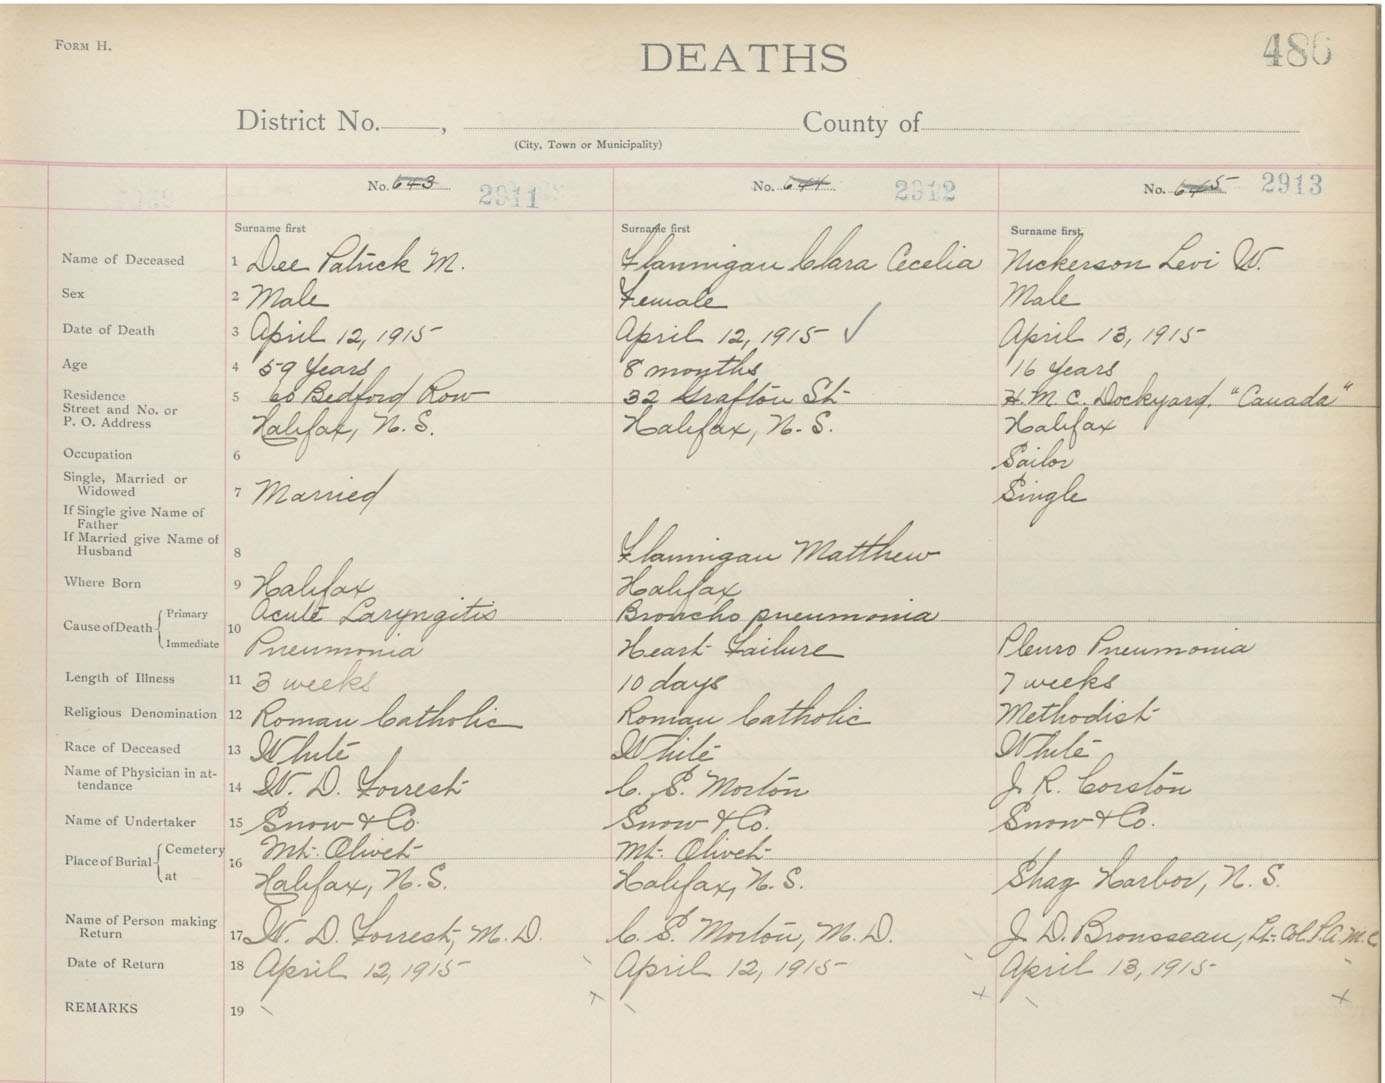 FORM H.
DEATHS
486
District No. , County of
(City, Town or Municipality)
No. 643 2911 No. 644 2912 No. 645 2913
Surname first Surname first Surname first
Name of Deceased 1 Dee Patrick M. Flannigan Clara Cecelia Nickerson Levi W.
Sex 2 Male Female Male
Date of Death 3 April 12, 1915 April 12, 1915 ✓ April 13, 1915
Age 4 59 Years 8 months 16 years
Residence 5 60 Bedford Row 32 Grafton St H.M.C. Dockyard, "Canada"
Street and No. or
P. O. Address Halifax, N.S. Halifax, N.S. Halifax
Occupation 6 Sailor
Single, Married or
Widowed 7 Married Single
If Single give Name of
Father
If Married give Name of
Husband 8 Flannigan Matthew
Where Born 9 Halifax Halifax
Cause of Death Primary 10 Acute Laryngitis Broncho pneumonia
Immediate Pneumonia Heart Failure Pleuro Pneumonia
Length of Illness 11 3 weeks 10 days 7 weeks
Religious Denomination 12 Roman Catholic Roman Catholic Methodist
Race of Deceased 13 White White White
Name of Physician in at-
tendance 14 W. D. Forrest C. S. Morton J. R. Corston
Name of Undertaker 15 Snow & Co. Snow & Co. Snow & Co.
Place of Burial Cemetery 16 Mt. Olivet Mt. Olivet
at Halifax, N.S. Halifax, N.S. Shag Harbor, N.S.
Name of Person making
Return 17 W. D. Forrest, M.D. C. S. Morton, M.D. J. D. Brousseau, Lt. Col. P.A.M.C
Date of Return 18 April 12, 1915 April 12, 1915 April 13, 1915
REMARKS 19